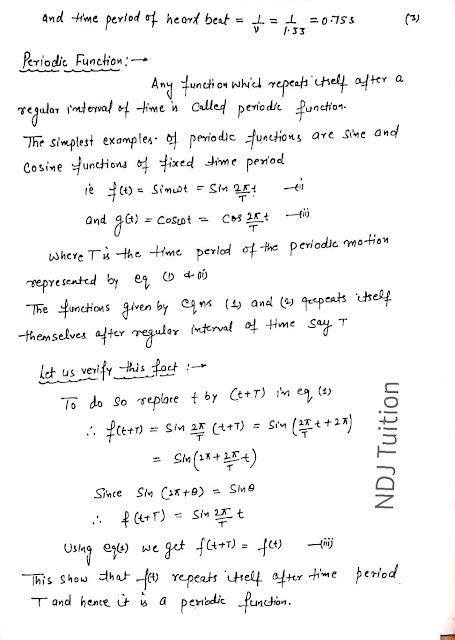 and time period of heart beat = 1/ν = 1/1.33 = 0.75s (3)
Periodic Function:→
Any function which repeats itself after a
regular interval of time is called periodic function.
The simplest examples of periodic functions are sine and
cosine functions of fixed time period
ie f(t) = Sinωt = Sin 2π/T t —(i)
and g(t) = cosωt = Cos 2π/T t —(ii)
where T is the time period of the periodic motion
represented by eq (i) & (ii)
The functions given by eqns (1) and (2) repeats itself
themselves after regular interval of time say T
Let us verify this fact :→
To do so replace t by (t+T) in eq (1)
∴ f(t+T) = Sin 2π/T (t+T) = Sin (2π/T t + 2π)
= Sin(2π + 2π/T t)
Since Sin (2π+θ) = Sinθ
∴ f(t+T) = Sin 2π/T t
Using eq(1) we get f(t+T) = f(t) —(iii)
This show that f(t) repeats itself after time period
T and hence it is a periodic function.
NDJ Tuition